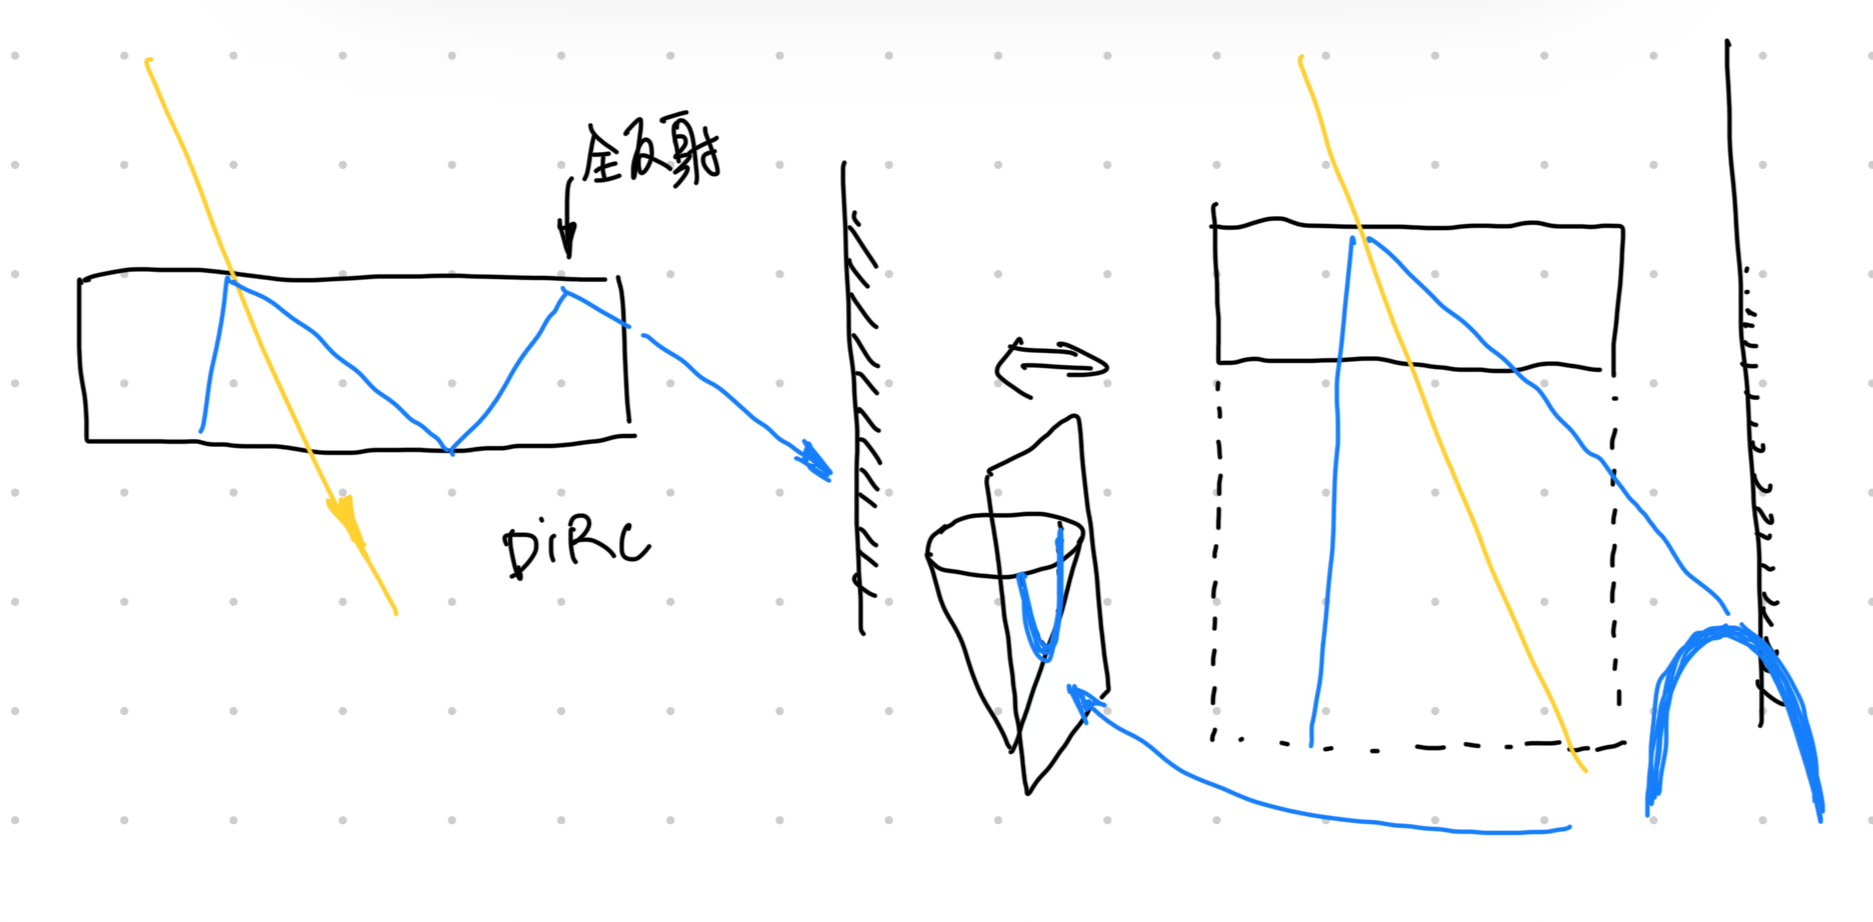 全反射
DiRC